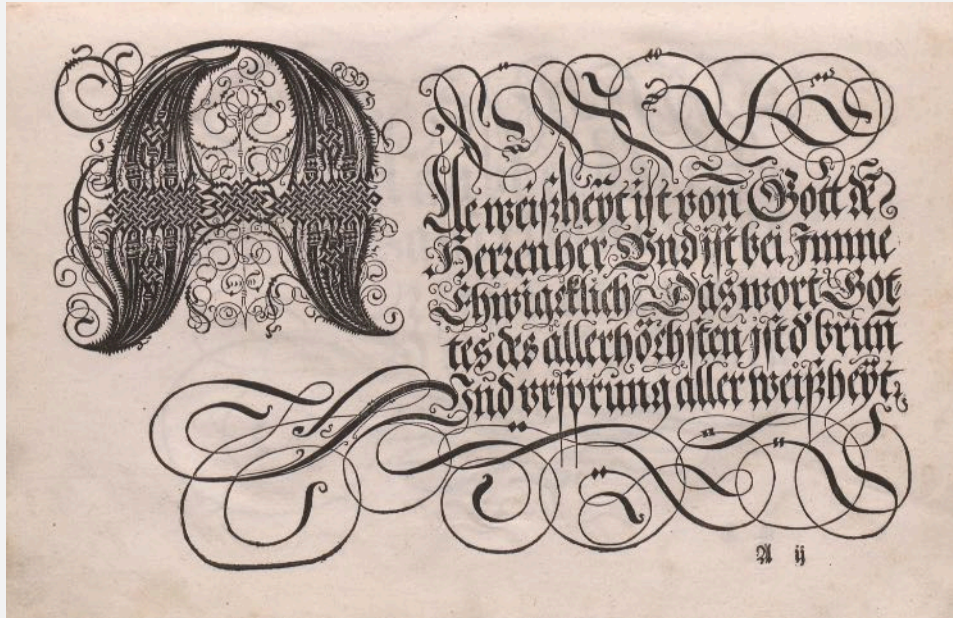 Alle weißheÿt ist von Gott dē
Herren her Vnd jst bei Jmme
Ehwigcklich Das wort Got-
tes des allerhöchsten jst d' brun̄
Vnd vrsprung aller weißheÿt.
A ij